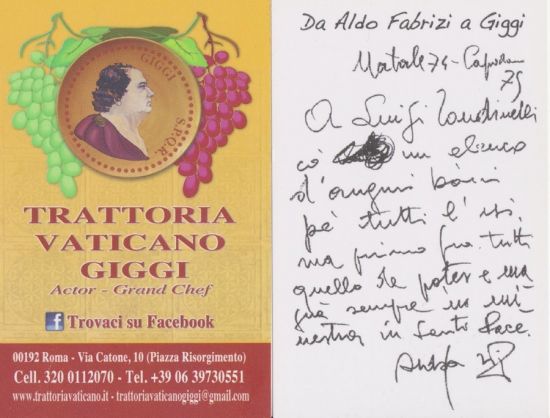 GIGGI
S.P.Q.R.
TRATTORIA
VATICANO
GIGGI
Actor - Grand Chef
f Trovaci su Facebook
00192 Roma - Via Catone, 10 (Piazza Risorgimento)
Cell. 320 0112070 - Tel. +39 06 39730551
www.trattoriavaticano.it - trattoriavaticanogiggi@gmail.com
Da Aldo Fabrizi a Giggi
Natale 74 - Capodan
75
A Luigi
co' un elenco
d'auguri boni
pé tutti
ma primo fra tutti
quello de poter
sempre
in Santa Pace.